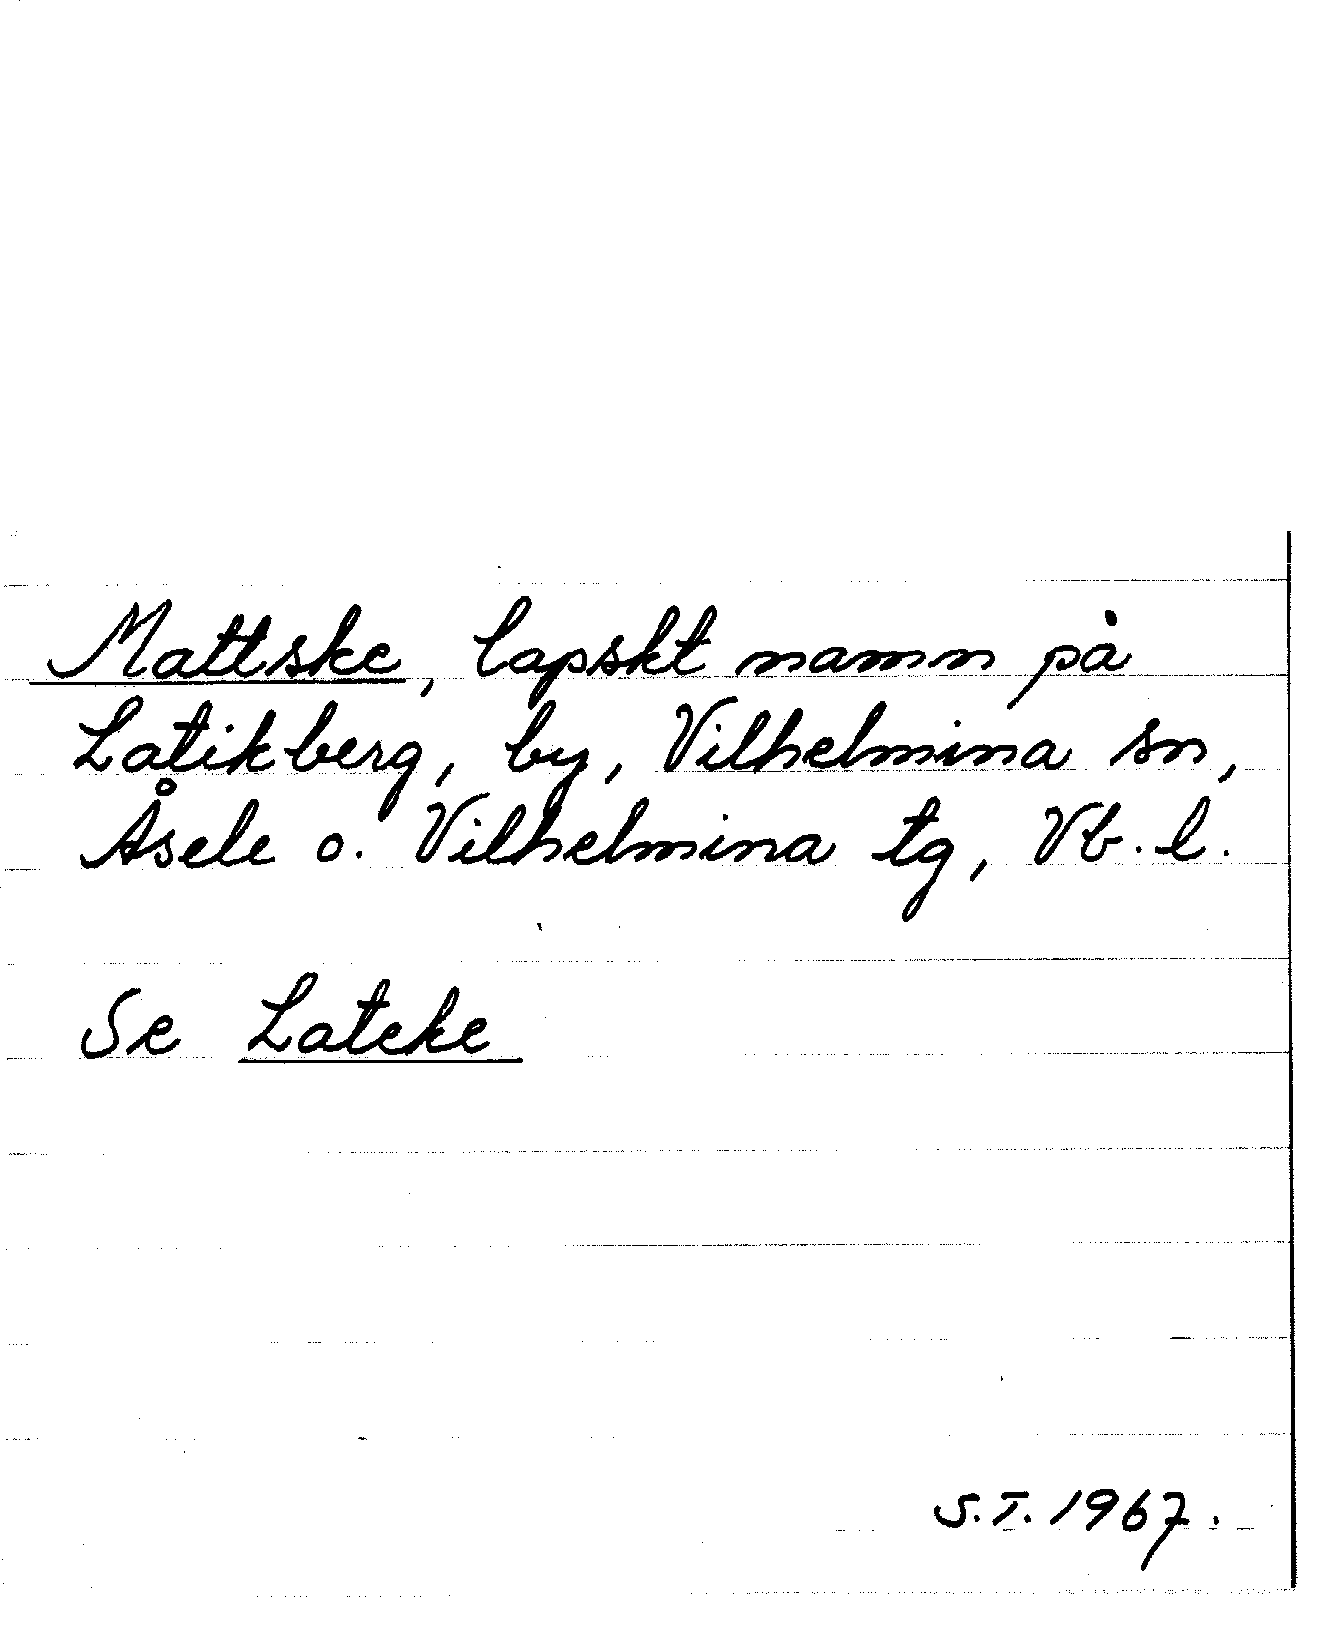 Mattske, lapskt namn på
Latikberg, by, Vilhelmina sn,
Åsele o. Vilhelmina tg, Vb. l.
Se Lateke
S.T. 1967.